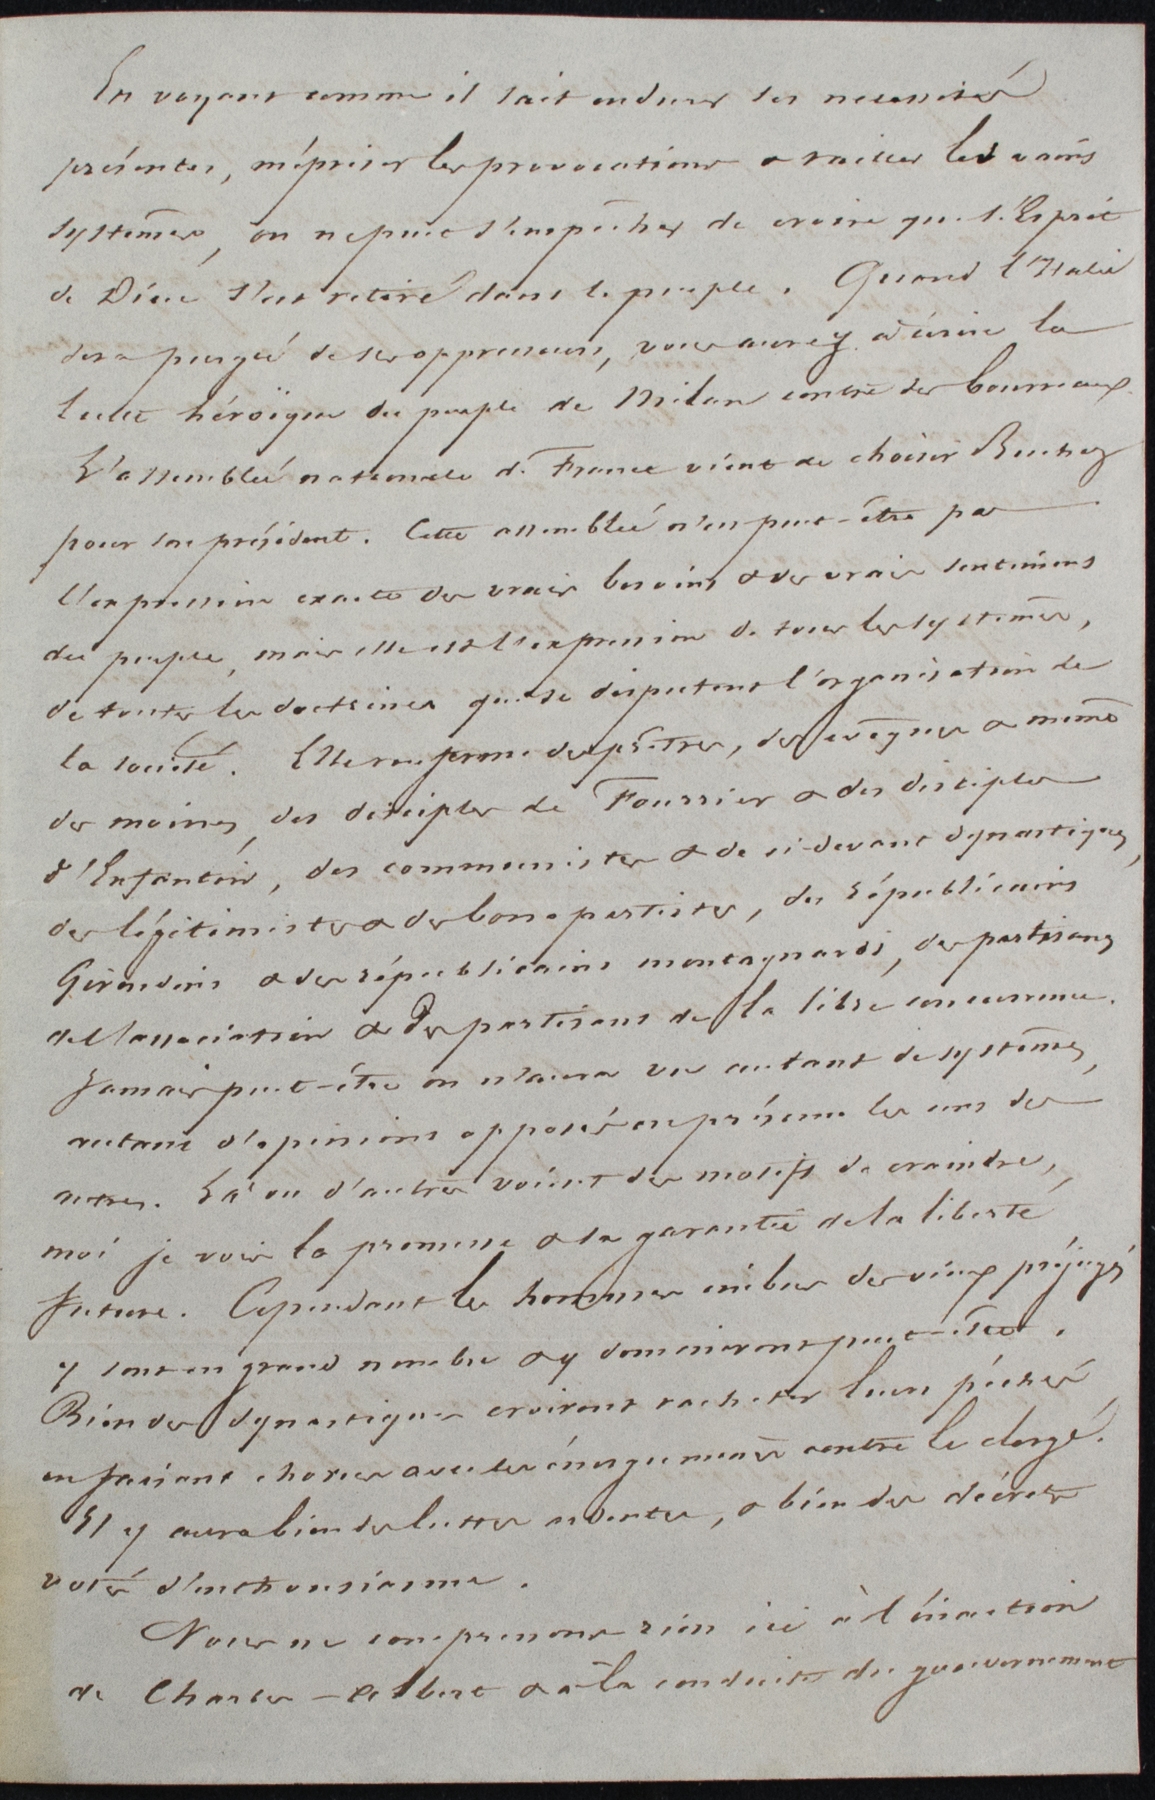 En voyant comme il sait endurer les nécessités
présentes, mépriser les provocations & railler les vains
systêmes, on ne peut s'empêcher de croire que l'Esprit
de Dieu s'est retiré dans le peuple. Quand l'Italie
sera purgée de ses oppresseurs, vous aurez à écrire la
lutte héroïque du peuple de Milan contre des bourreaux.
L'assemblée nationale de France vient de choisir Buchez
pour son président. Cette assemblée n'est peut-être pas
l'expression exacte des vrais besoins & des vrais sentimens
du peuple, mais elle est l'expression de tous les systêmes,
de toutes les doctrines qui se disputent l'organisation de
la société. Elle renferme des prêtres, des évêques & même
des moines, des disciples de Fourrier & des disciples
d'Enfantin, des communistes & de ci-devant dynastiques,
des légitimistes & des bonapartistes, des républicains
Girondins & des républicains montagnards, des partisans
de l'association & des partisans de la libre concurrence.
Jamais peut-être on n'aura vu autant de systêmes,
autant d'opinions opposés en présence les uns des
autres. Là où d'autres voient des motifs de craindre,
moi je vois la promesse & la garantie de la liberté
future. Cependant les hommes imbus des vieux préjugés
y sont en grand nombre & y domineront peut-être.
Bien des dynastiques croiront racheter leurs péchés
en faisant chorus avec les énergumènes contre le clergé.
Il y aura bien des luttes ardentes, & bien des décrets
votés d'enthousiasme.
Nous ne comprenons rien ici à l'inaction
de Charles-Albert & à la conduite du gouvernement